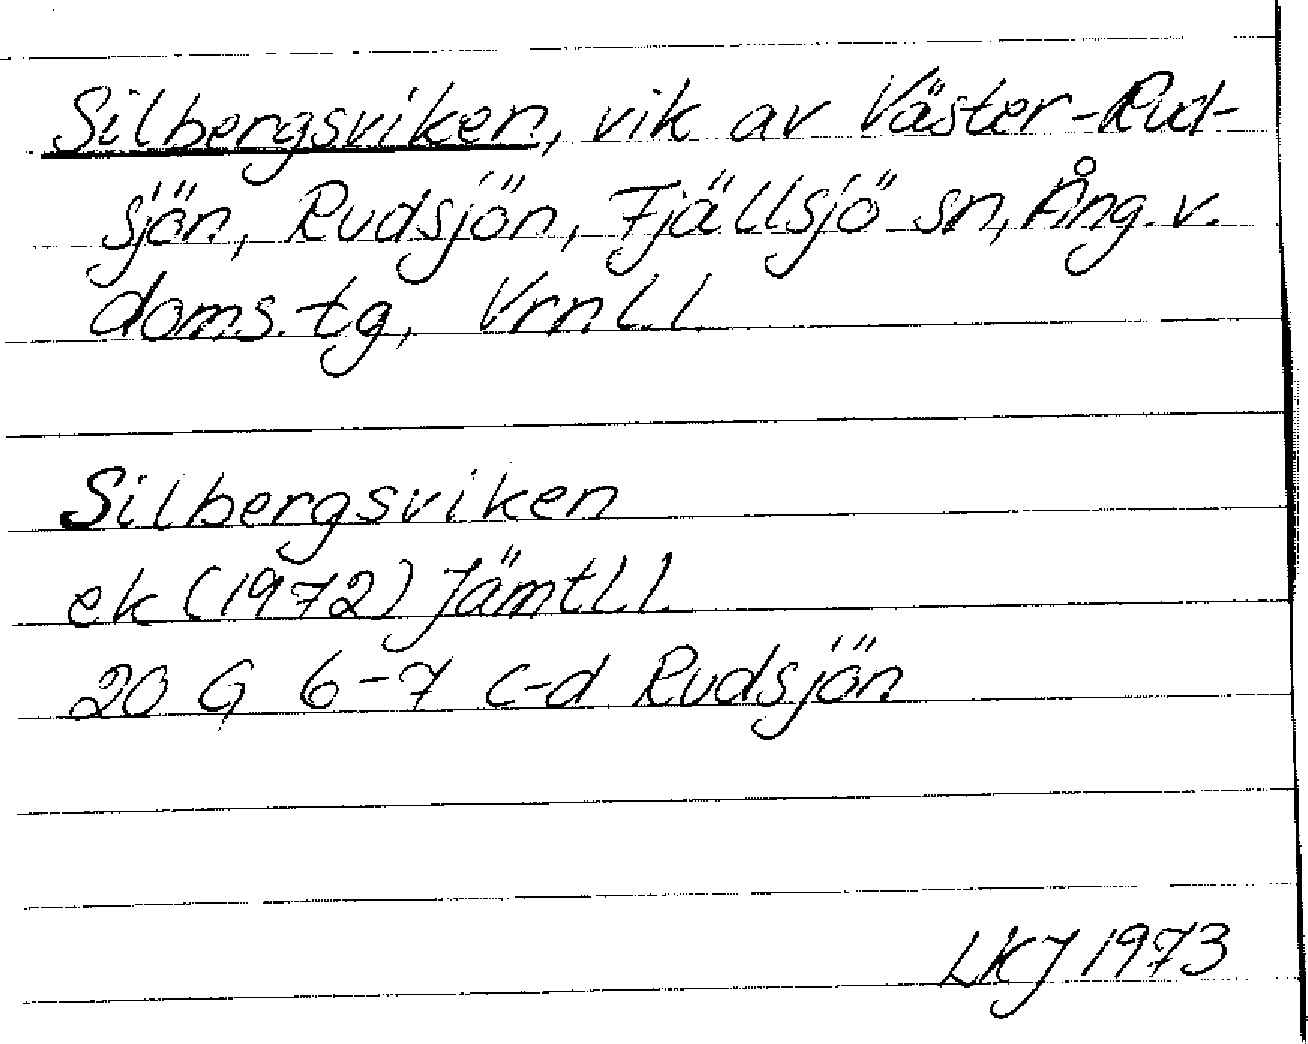 Silbergsviken, vik av Väster-Rud-
sjön, Rudsjön, Fjällsjö sn, Ång. v.
doms. tg, Vrnl.l.
Silbergsviken
ek (1972) Jämtl.l.
20 G 6-7 c-d Rudsjön
LKJ 1973